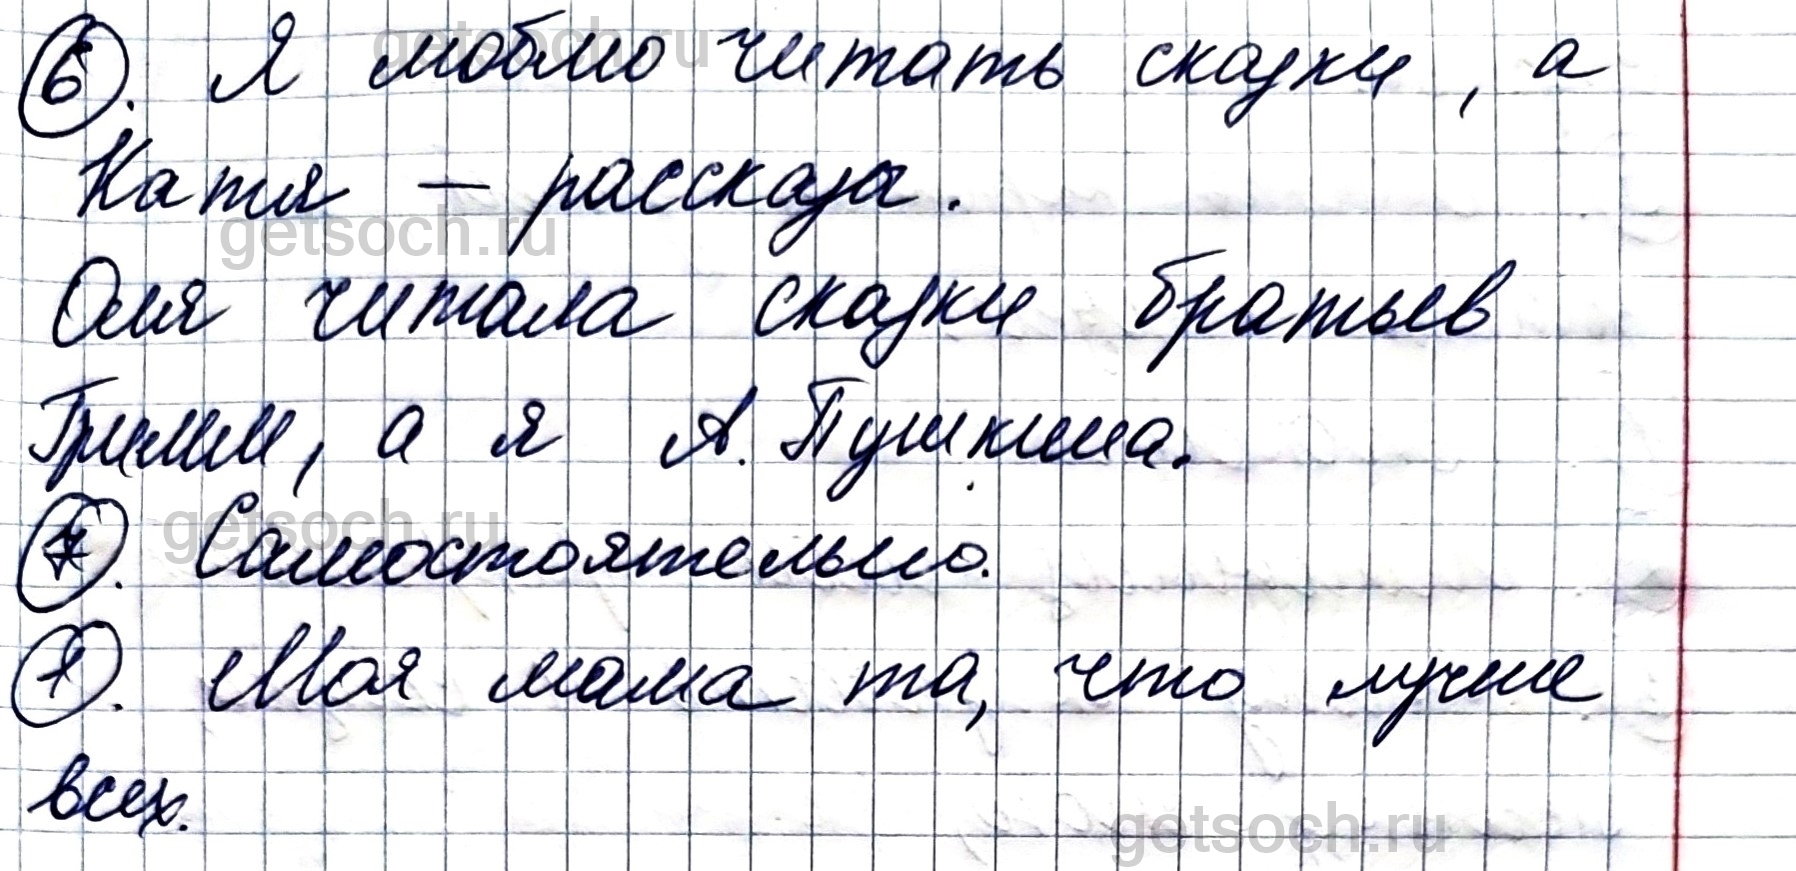 6. Я люблю читать сказки, а
Катя – рассказы.
Оля читала сказки братьев
Гримм, а я А. Пушкина.
7. Самостоятельно.
1. Моя мама та, что лучше
всех.
getsoch.ru
getsoch.ru
getsoch.ru
getsoch.ru